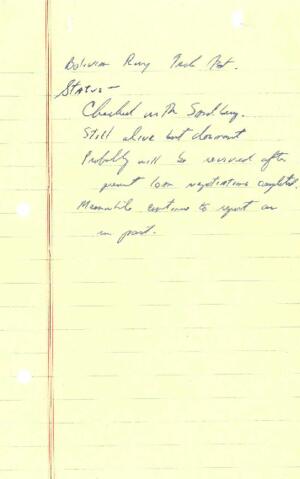 Bolivian Rwy Tech Ast.
Status —
Checked with Sandberg.
Still alive but dormant
Probably will be revived after
present loan negotiations completed.
Meanwhile continue to report as
in past.